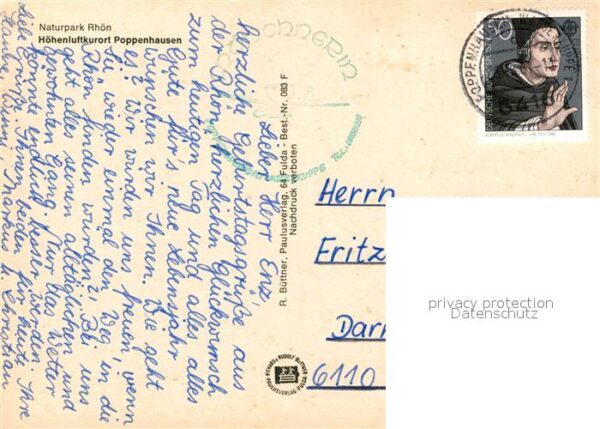 Naturpark Rhön
Höhenluftkurort Poppenhausen
Lieber Herr Enz
herzliche Geburtstagsgrüße aus
der Rhön, herzlichen Glückwunsch
zum heutigen Tag und alles alles
Gute für's neue Lebensjahr
wünschen wir Ihnen. Wie geht
es? Wir würden uns freuen, wenn
Sie wieder einmal den Weg in die
Rhön finden würden. Bei uns
geht alles sein alltäglichen und
gewohnten Gang. Nur das Wetter
könnte endlich besser werden.
Liebe Grüße
R. Büttner, Paulusverlag, 64 Fulda - Best.-Nr. 083 F
Nachdruck verboten
RICHARD & RUDOLF BÜTTNER
PAULUSVERLAG FULDA
50
DEUTSCHE BUNDESPOST
ALBERTUS MAGNUS
Herrn
Fritz
Darm
6110
privacy protection
Datenschutz